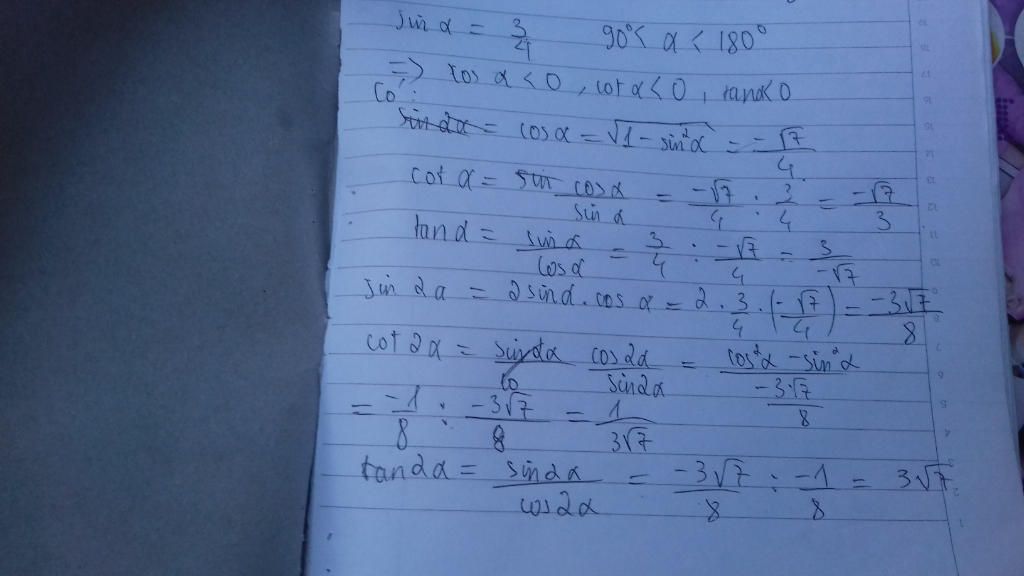 sin α = 3/4 90° < α < 180°
=> cos α < 0 , cot α < 0 , tan α < 0
Có :
sin 2α = cos α = √(1 - sin²α) = -√7/4
cot α = sin cos α / sin α = -√7/4 : 3/4 = -√7/3
tan α = sin α / cos α = 3/4 : -√7/4 = 3/-√7
sin 2α = 2 sin α . cos α = 2 . 3/4 . (-√7/4) = -3√7/8
cot 2α = sin 2α / co cos 2α / sin 2α = cos²α - sin²α / -3√7/8
= -1/8 : -3√7/8 = 1/3√7
tan 2α = sin 2α / cos 2α = -3√7/8 : -1/8 = 3√7